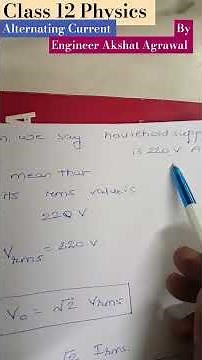 Class 12 Physics
Alternating Current
By
Engineer Akshat Agrawal
we say household supp
is 220 V A
mean that
its rms value is
220 V
Vrms = 220 V
V₀ = √2 Vrms
√2 Irms